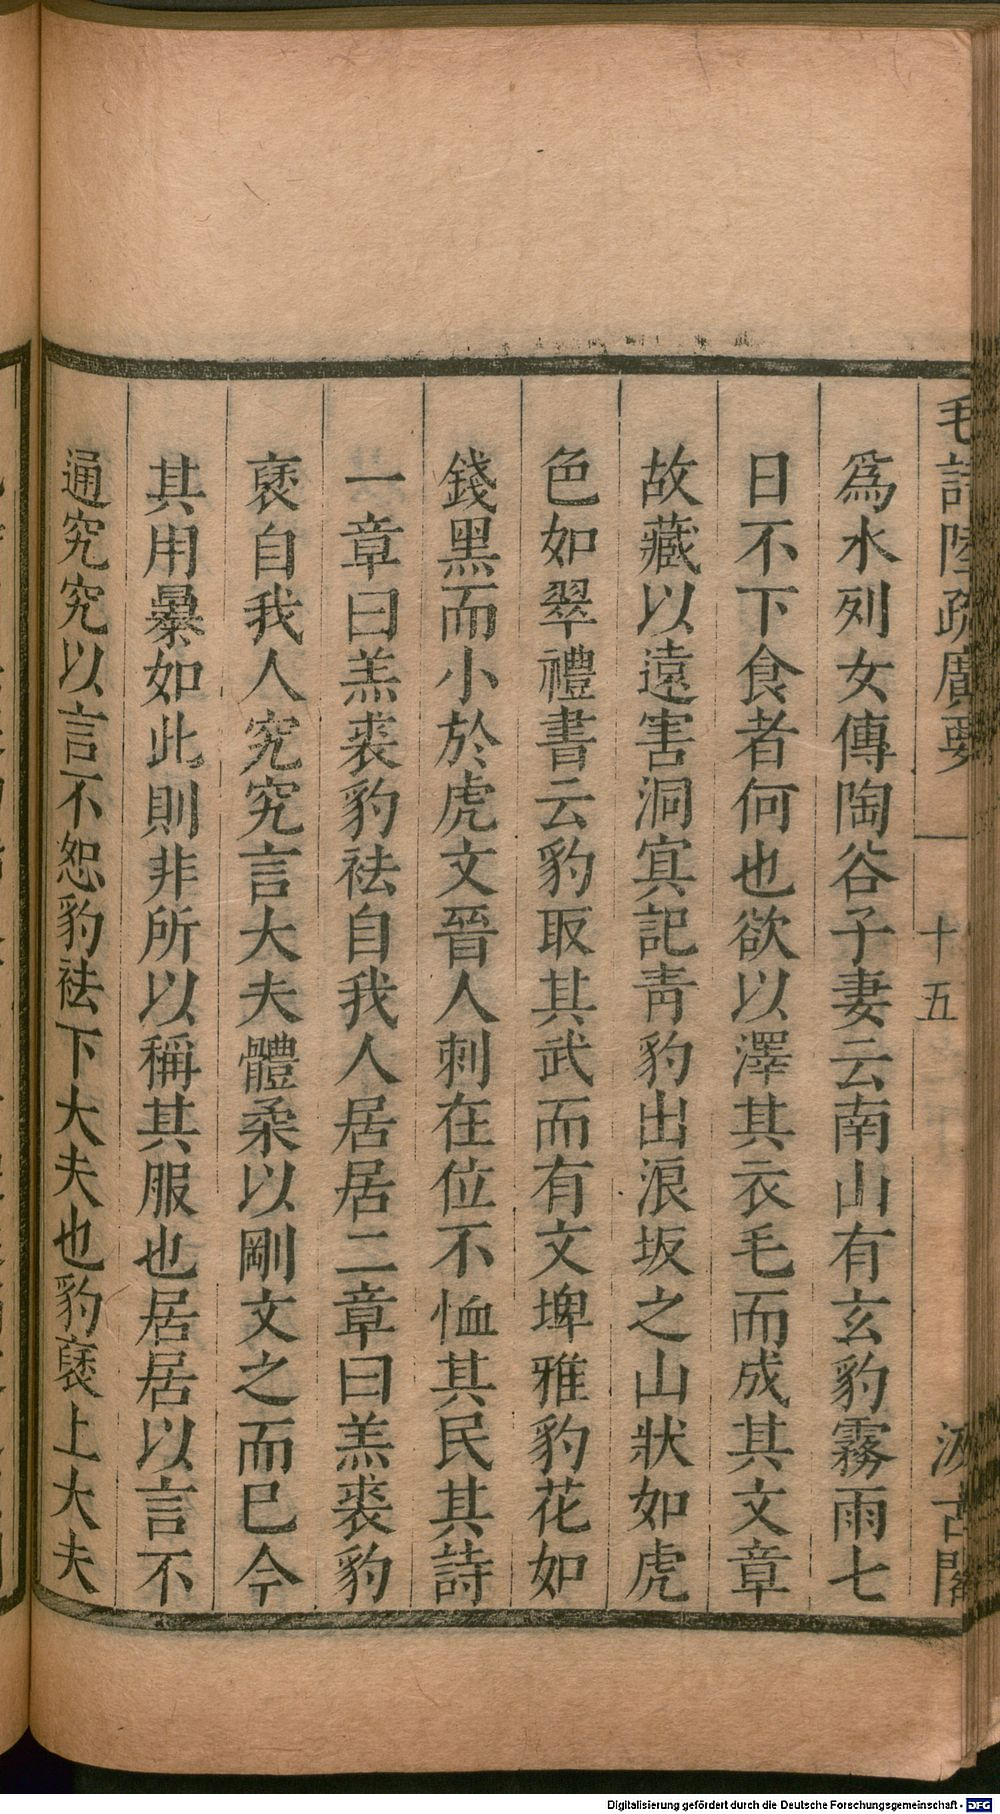 毛詩陸疏廣要
十五
汲古閣
爲水列女傳陶谷子妻云南山有玄豹霧雨七
日不下食者何也欲以澤其衣毛而成其文章
故藏以遠害洞㝠記靑豹出浪坂之山狀如虎
色如翠禮書云豹取其武而有文埤雅豹花如
錢黑而小於虎文晉人刺在位不恤其民其詩
一章曰羔裘豹袪自我人居居二章曰羔裘豹
褎自我人究究言大夫體柔以剛文之而已今
其用暴如此則非所以稱其服也居居以言不
通究究以言不恕豹袪下大夫也豹褎上大夫
Digitalisierung gefördert durch die Deutsche Forschungsgemeinschaft - DFG